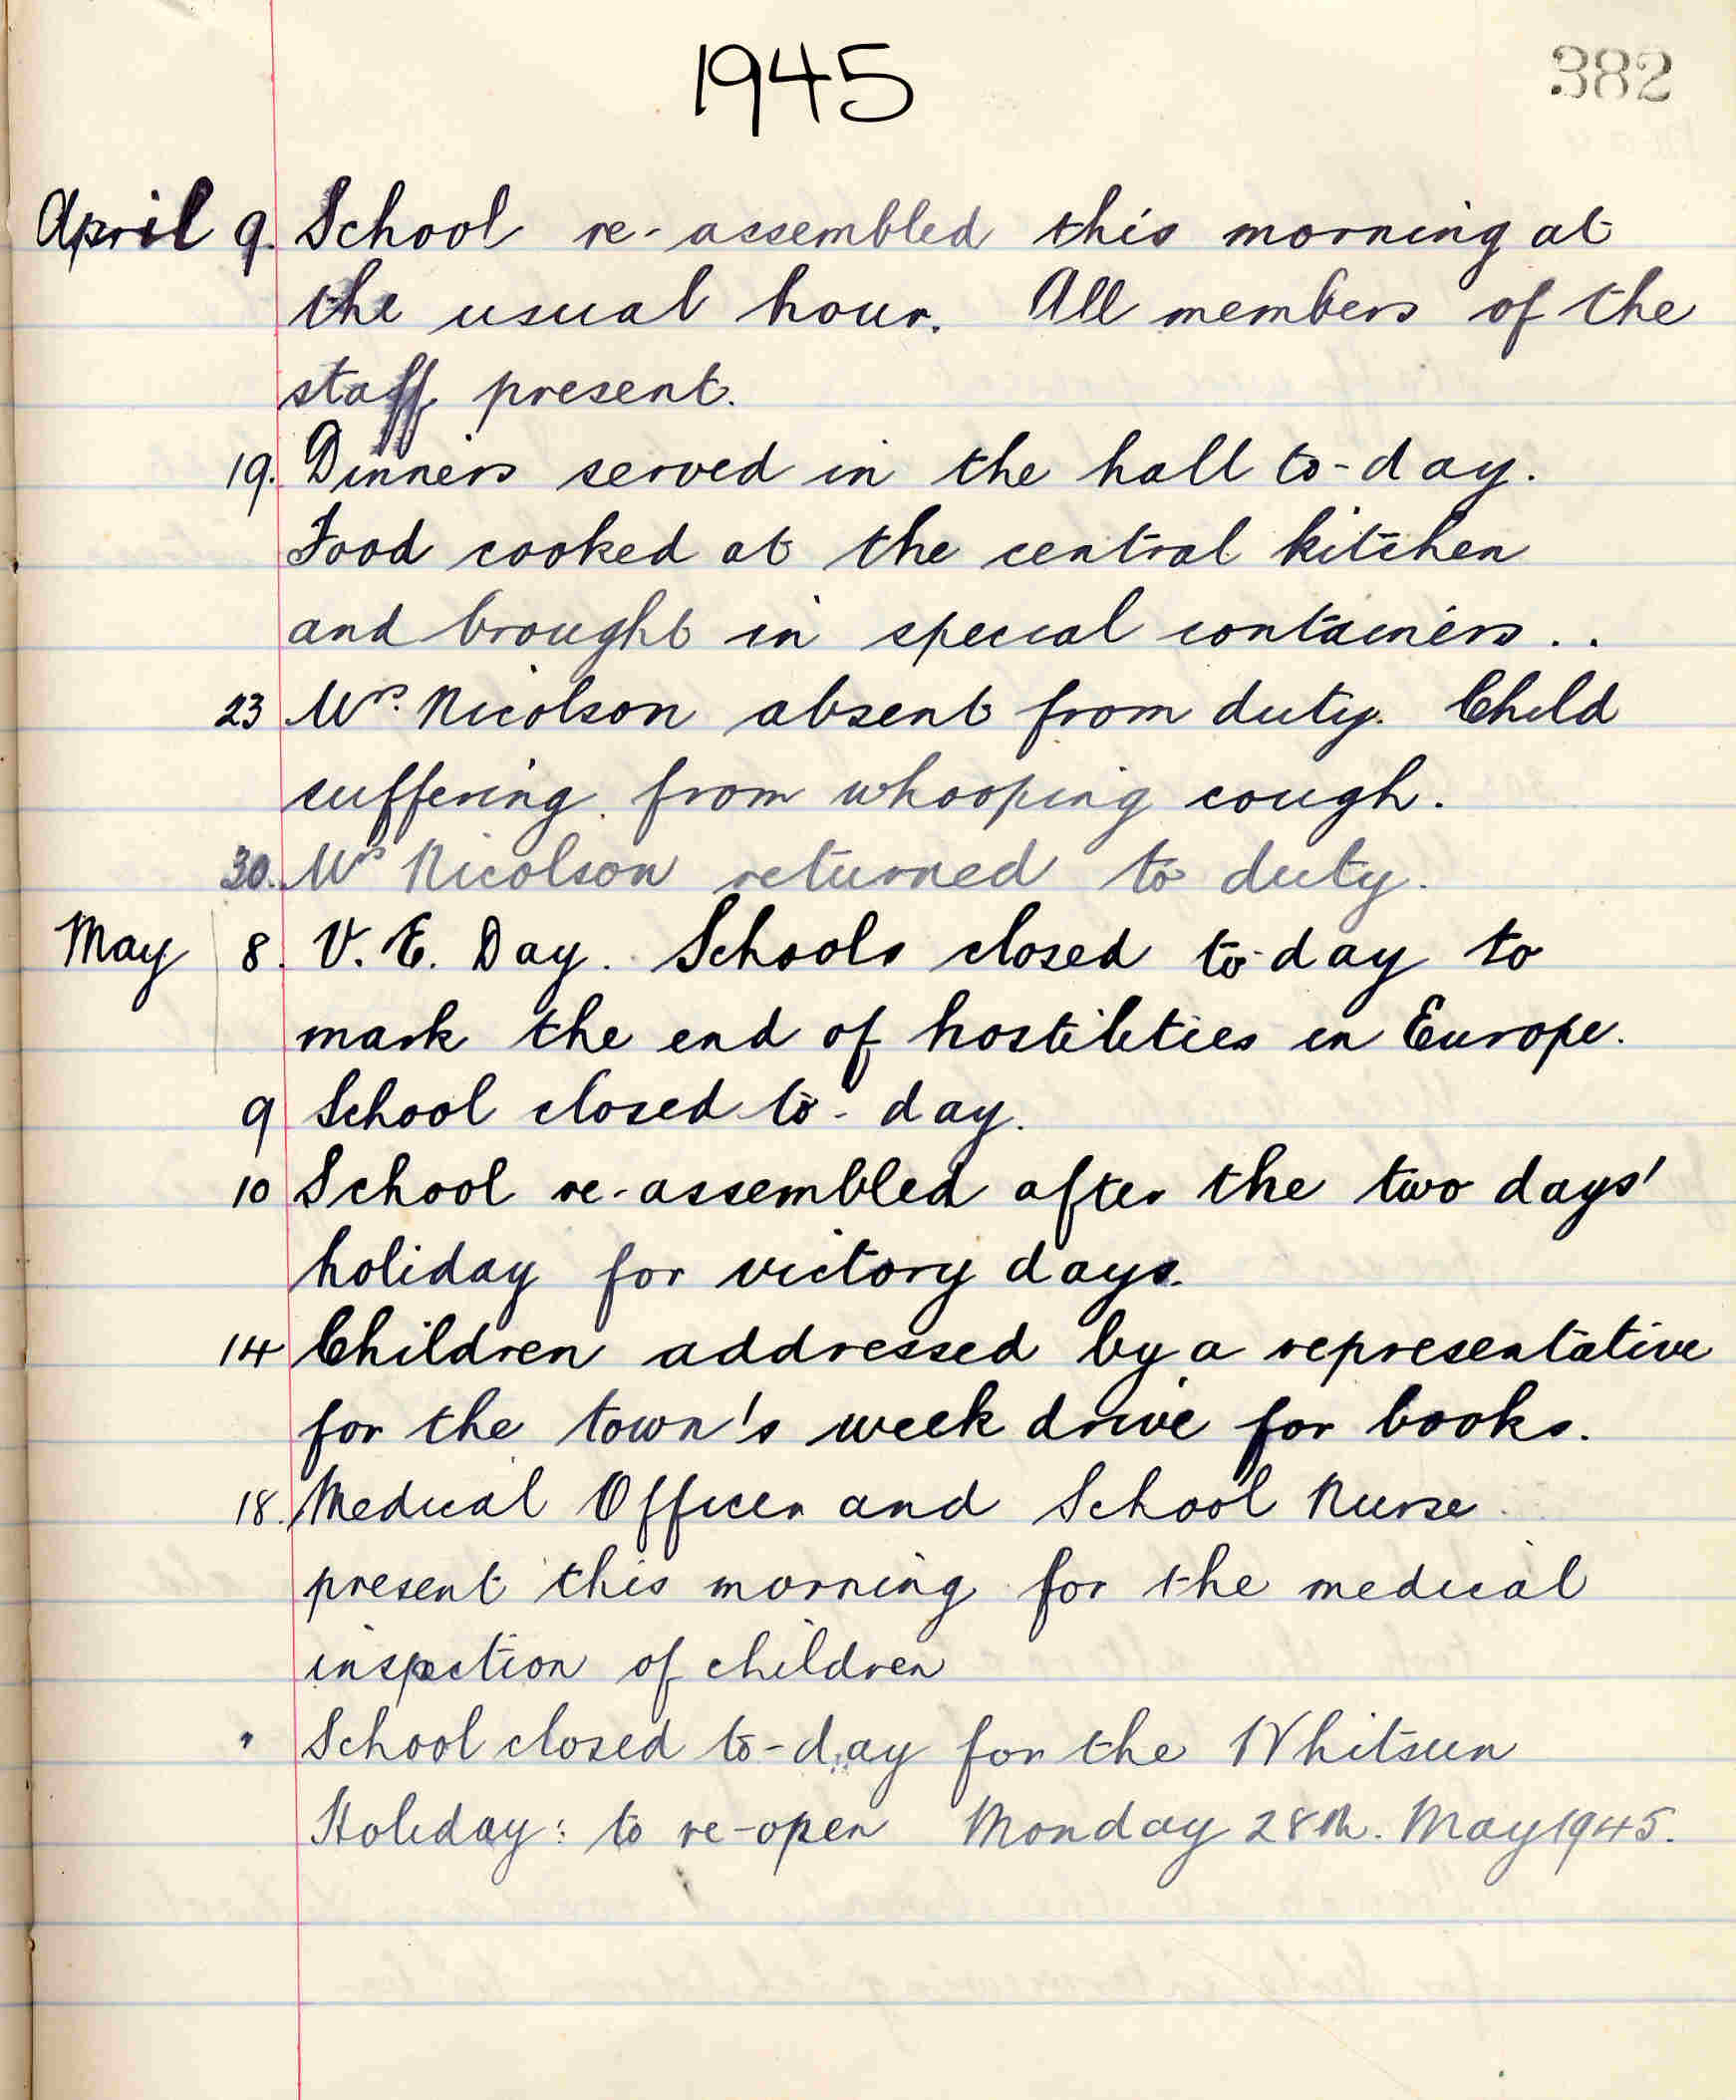 1945
382
April 9. School re-assembled this morning at
the usual hour. All members of the
staff present.
19. Dinners served in the hall to-day.
Food cooked at the central kitchen
and brought in special containers..
23 Mrs. Nicolson absent from duty. Child
suffering from whooping cough.
30. Mrs Nicolson returned to duty.
May 8. V. E. Day. Schools closed to-day to
mark the end of hostilities in Europe.
9 School closed to-day.
10 School re-assembled after the two days'
holiday for victory days.
14 Children addressed by a representative
for the town's week drive for books.
18. Medical Officer and School Nurse
present this morning for the medical
inspection of children
" School closed to-day for the Whitsun
Holiday: to re-open Monday 28th. May 1945.